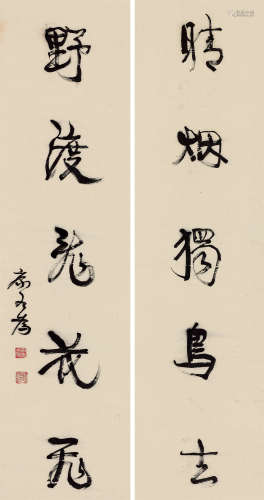 晴烟獨鳥去
野渡亂花飛
康有為